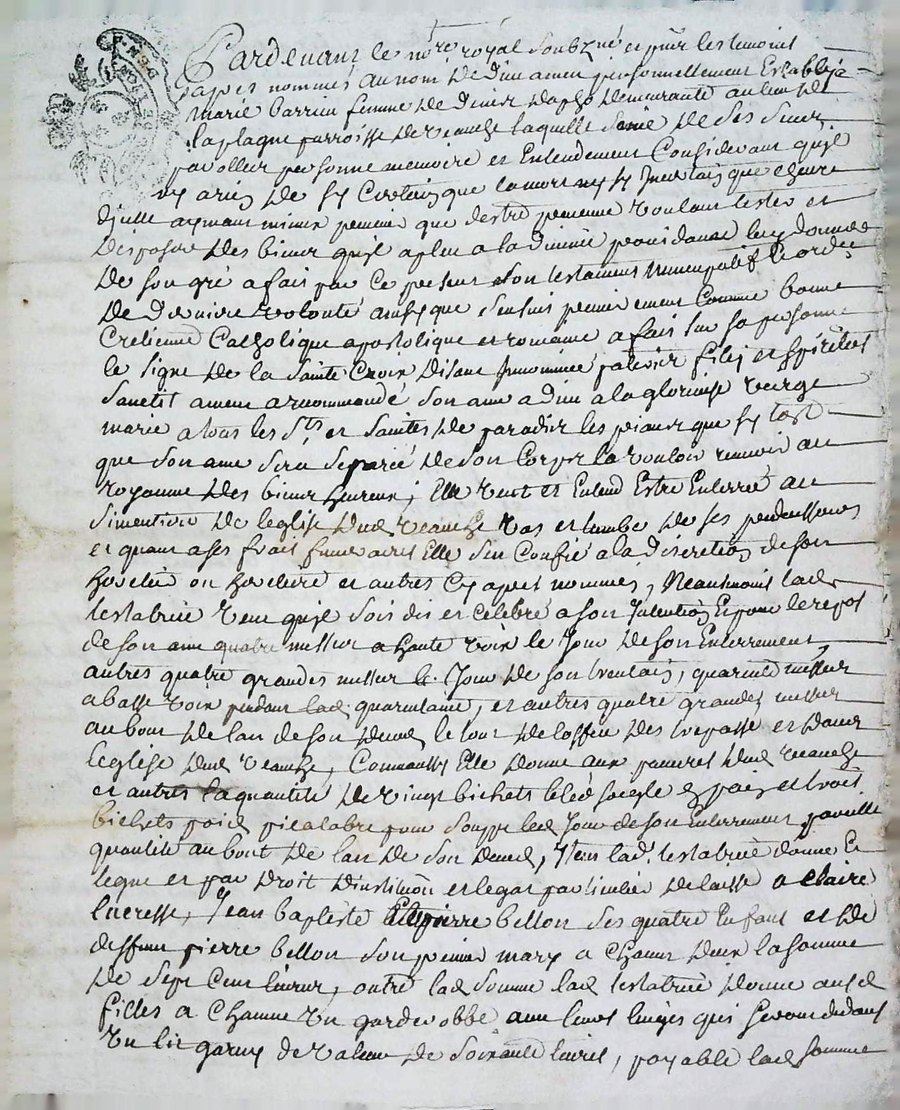 Pardevant le nore royal soubzné et pnts les temoins
apres nommés au nom de dieu amen personnellement establye
marie barriou femme de denis daphs demeurante au lieu de
la plagne parroisse de veauche laquelle saine de ses sens
par alleur personne memoire et entendement considerant quil
ny a rien de sy certain que la mort ny sy incertain que lheure
dicelle aymant mieux prevenir que destre prevenue voulant tester et
disposer des biens quil a pleu a la divinne providance luy donner
de son gré a fait par ce present son testament nuncupatif et ordce
de derniere volonté ainsy que sensuit premierement comme bonne
cretienne catholique apostolique et romaine a fait sur sa personne
le signe de la sainte croix disant innominé patris et filij et spiritus
sancti amen a recommandé son ame a dieu a la glorieuse vierge
marie a tous les sts et saintes de paradis les priant que sy tost
que son ame sera separée de son corps la vouloir recevoir au
royaume des bienheureux ; elle veut et entend estre enterrée au
simentiere de leglise dud veauche vas et tumbe de ses predecesseurs
et quant a ses frais funeraires elle sen confie a la discretion de son
heretier ou heretiere et autres cy apres nommés, neansmoins lad
testatrice veut quil soit dit et celebré a son intention et pour le repos
de son ame quatre messes a haute voix le jour de son enterrement
autres quatre grandes messes le jour de son trentain, quarante messes
a basse voix pendant lad quarantaine, et autres quatre grandes messes
au bout de lan de son deced le tout de loffice des trepassé et dans
leglise dud veauche, comaussy elle donne aux pauvres dud veauche
et autres la quantité de vingt bichets bled soegle en pain et trois
bichets poid pour souppe led jour de son enterrement pareille
quantité au bout de lan de son deced, item lad. testatrice donne et
legue et par droit dinstitution et legat particulier delaisse a claire
lucresse, jean baptiste et pierre bellon ses quatre enfans et de
deffunt pierre bellon son premier mary a chacun deux la somme
de sept cent livres, outre lad somme lad testatrice donne aused
filles a chacune un garderobbe avec leurs linges qui seront dedans
un lit garny de valeur de soixante livres, payable lad somme